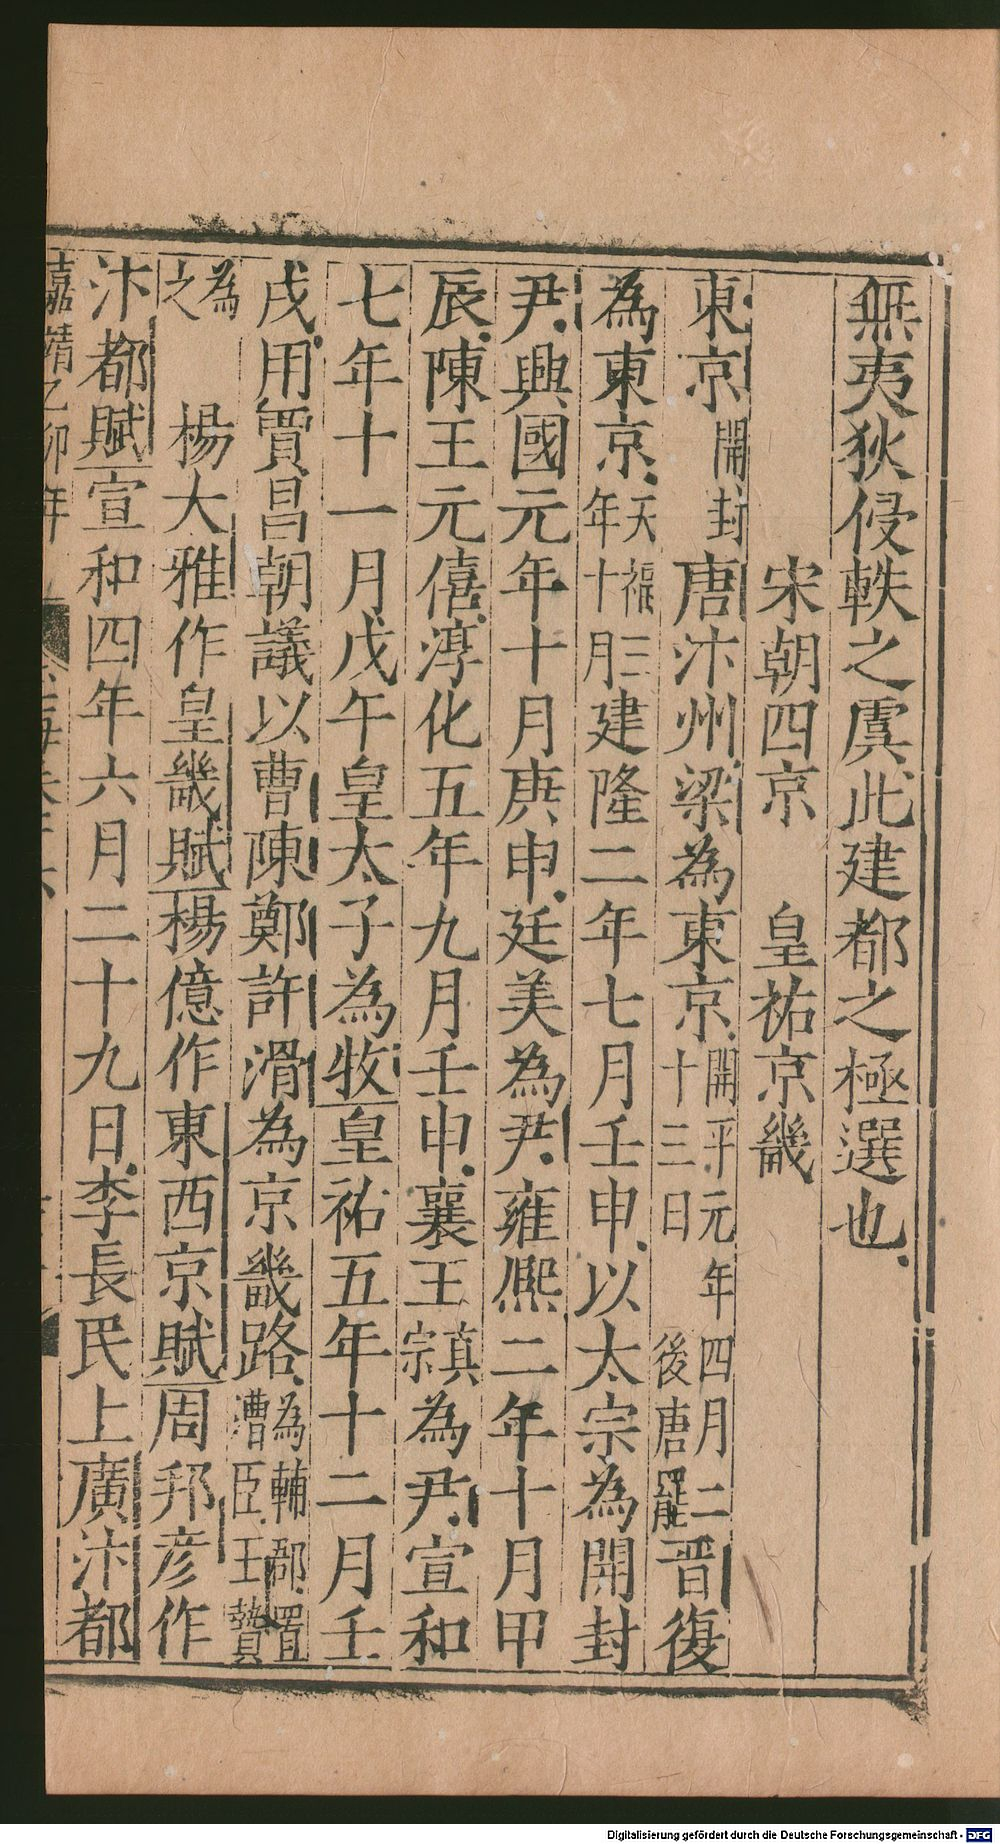 無夷狄侵軼之虞此建都之極選也
宋朝四京 皇祐京畿
東京開封唐汴州梁為東京開平元年四月二十三日後唐罷晋復
為東京天福三年十月建隆二年七月壬申以太宗為開封
尹興國元年十月庚申廷美為尹雍熙二年十月甲
辰陳王元僖淳化五年九月壬申襄王真宗為尹宣和
七年十一月戊午皇太子為牧皇祐五年十二月壬
戌用賈昌朝議以曹陳鄭許滑為京畿路為輔郡置漕臣王贄
為之 楊大雅作皇畿賦楊億作東西京賦周邦彦作
汴都賦宣和四年六月二十九日李長民上廣汴都
嘉靖乙卯年
Digitalisierung gefördert durch die Deutsche Forschungsgemeinschaft - DFG